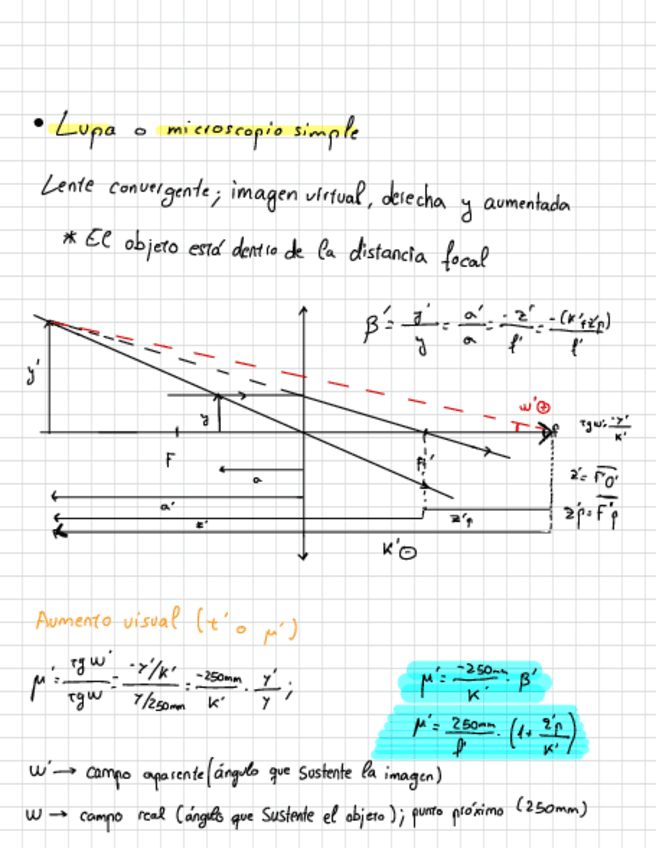 • Lupa o microscopio simple
Lente convergente; imagen virtual, derecha y aumentada
* El objeto está dentro de la distancia focal
β' = y'/y = a'/a = -z'/f' = -(K'+z'p)/f'
y'
y
w'⊕
tg w' = -y'/K'
F
F'
a
a'
z'
z'p
z' = F'O'
z'p = F'p
K'⊖
Aumento visual (t' o μ')
μ' = tg w'/tg w = -y'/K' / y/250mm = -250mm/K' · y'/y ;
μ' = -250mm/K' · β'
μ' = 250mm/f' · (1 + z'p/K')
w' → campo aparente (ángulo que sustente la imagen)
w → campo real (ángulo que sustente el objeto); punto próximo (250mm)